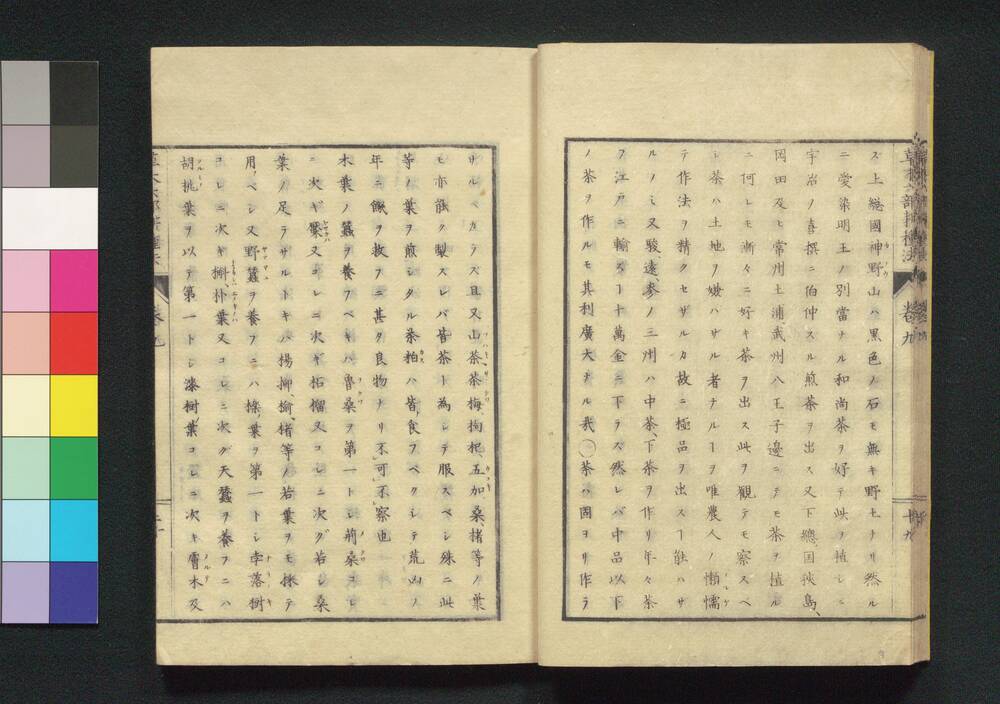 草木六部耕種法
卷九
十九
ス上総國神野山ハ黒色ノ石モ無キ野土ナリ然ル
ニ愛染明王ノ別當ナル和尚茶ヲ好テ此ヲ植シニ
宇治ノ喜撰ニ伯仲スル煎茶ヲ出ス又下總国猿島、
岡田及ヒ常州土浦武州八王子邊ニテモ茶ヲ植ル
ニ何レモ漸々ニ好キ茶ヲ出ス此ヲ觀テモ察スベ
シ茶ハ土地ヲ嫌ハサル者ナルヿヲ唯農人ノ懶懦
テ作法ヲ精クセザルカ故ニ極品ヲ出スヿ能ハサ
ルノミ又駿、遠、参ノ三州ハ中茶、下茶ヲ作リ年々茶
ヲ江戸ニ輸スヿ十萬金ニ下ラズ然レバ中品以下
ノ茶ヲ作ルモ其利廣大ナル哉○茶ハ固ヨリ作ラ
サルベカラズ且又山茶、茶梅、枸杞、五加、桑、楮等ノ葉
モ亦能ク製スレバ皆茶ト為シテ服スベシ殊ニ此
等ノ葉ヲ煎シタル茶粕ハ皆食フベクシテ荒凶ノ
年ニ飢ヲ救フニ甚タ良物ナリ不可不察也
木葉ノ蠶ヲ養フベキハ魯桑ヲ第一トシ荊桑コレ
ニ次ギ檿又コレニ次ギ柘榴又コレニ次グ若シ桑
葉ノ足テサルトキハ楊、柳、榆、楮等ノ若葉ヲモ採テ
用ベシ又野蠶ヲ養フニハ櫟葉ヲ第一トシ孛落樹
コレニ次キ槲、朴葉又コレニ次グ天蠶ヲ養フニハ
胡桃葉ヲ以テ第一トシ漆樹ノ葉コレニ次キ膚木及
草木六部耕種法
卷九